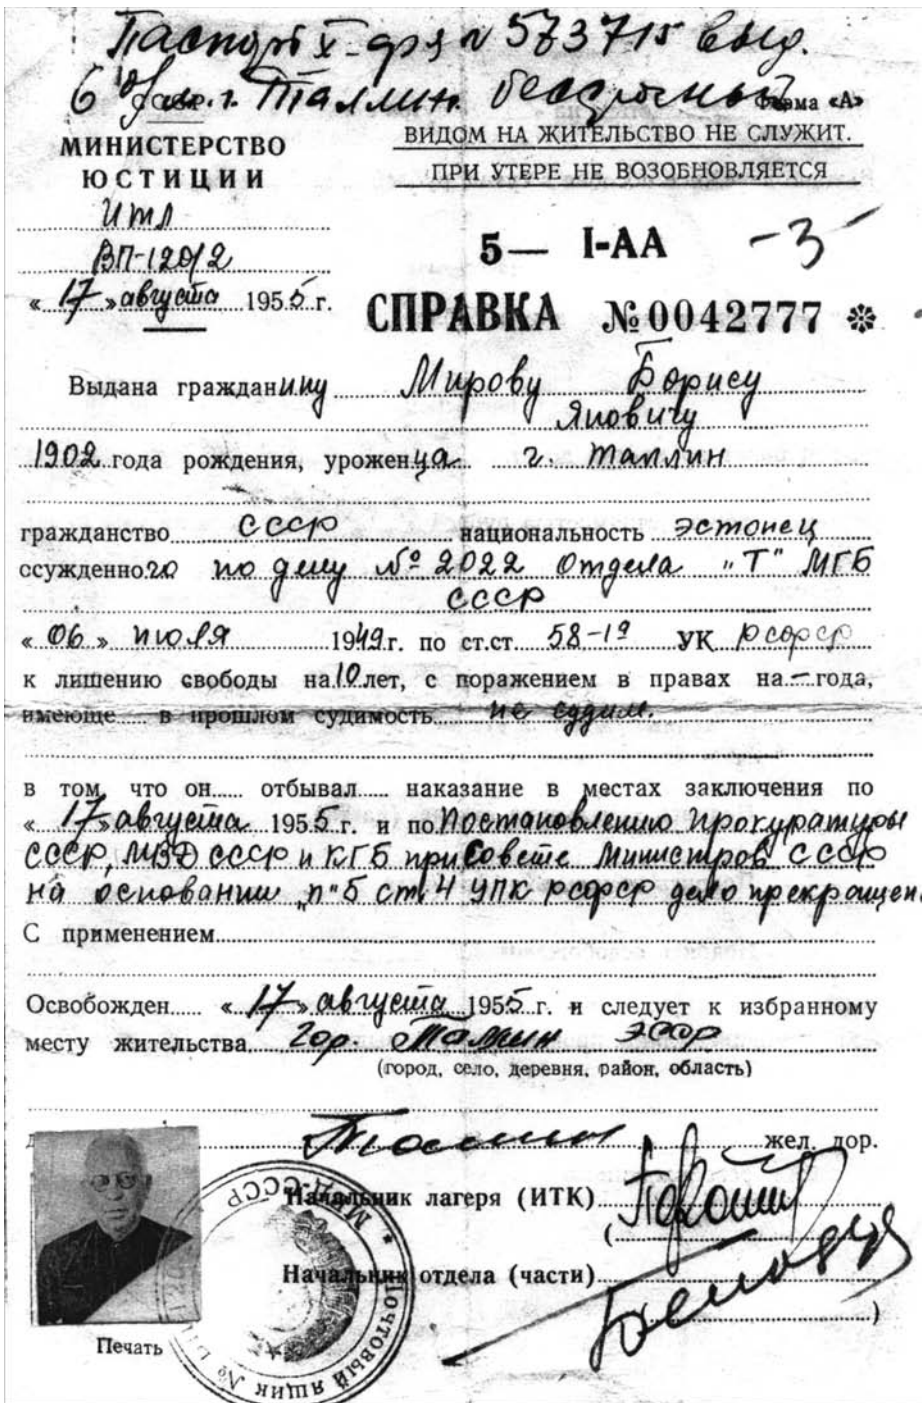 Паспорт X-
№ 573715 выд.
6 о/м. г. Таллин. бессрочный
Форма «А»
МИНИСТЕРСТВО
ЮСТИЦИИ
ВИДОМ НА ЖИТЕЛЬСТВО НЕ СЛУЖИТ.
ПРИ УТЕРЕ НЕ ВОЗОБНОВЛЯЕТСЯ
ИТЛ
ВП-120/2
«17» августа 1955 г.
5— I-АА -3
СПРАВКА № 0042777
Выдана гражданину Мирову Борису
Яновичу
1902 года рождения, уроженца г. Таллин
гражданство СССР национальность эстонец
ссужденного по делу № 2022 Отдела "Т" МГБ
СССР
«06» июля 1949 г. по ст.ст. 58-1а УК РСФСР
к лишению свободы на 10 лет, с поражением в правах на — года,
имеюще в прошлом судимость не судим.
в том, что он отбывал наказание в местах заключения по
«17» августа 1955 г. и по Постановлению Прокуратуры
СССР, МВД СССР и КГБ при Совете Министров СССР
на основании "п" 5 ст. 4 УПК РСФСР дело прекращен.
С применением
Освобожден «17» августа 1955 г. и следует к избранному
месту жительства гор. Таллин ЭССР
(город, село, деревня, район, область)
Таллин жел. дор.
Начальник лагеря (ИТК)
Начальник отдела (части)
Печать
МВД-СССР
Почтовый ящик №